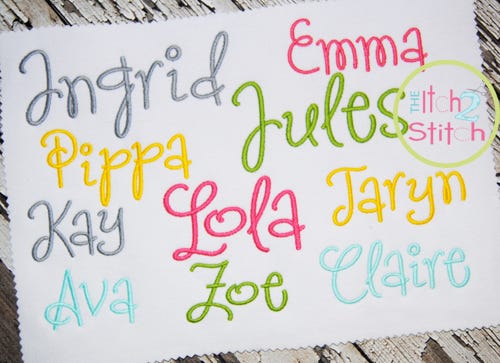 Ingrid
Emma
Jules
THE Itch 2 Stitch
Pippa
Taryn
Kay
Lola
Ava
Zoe
Claire